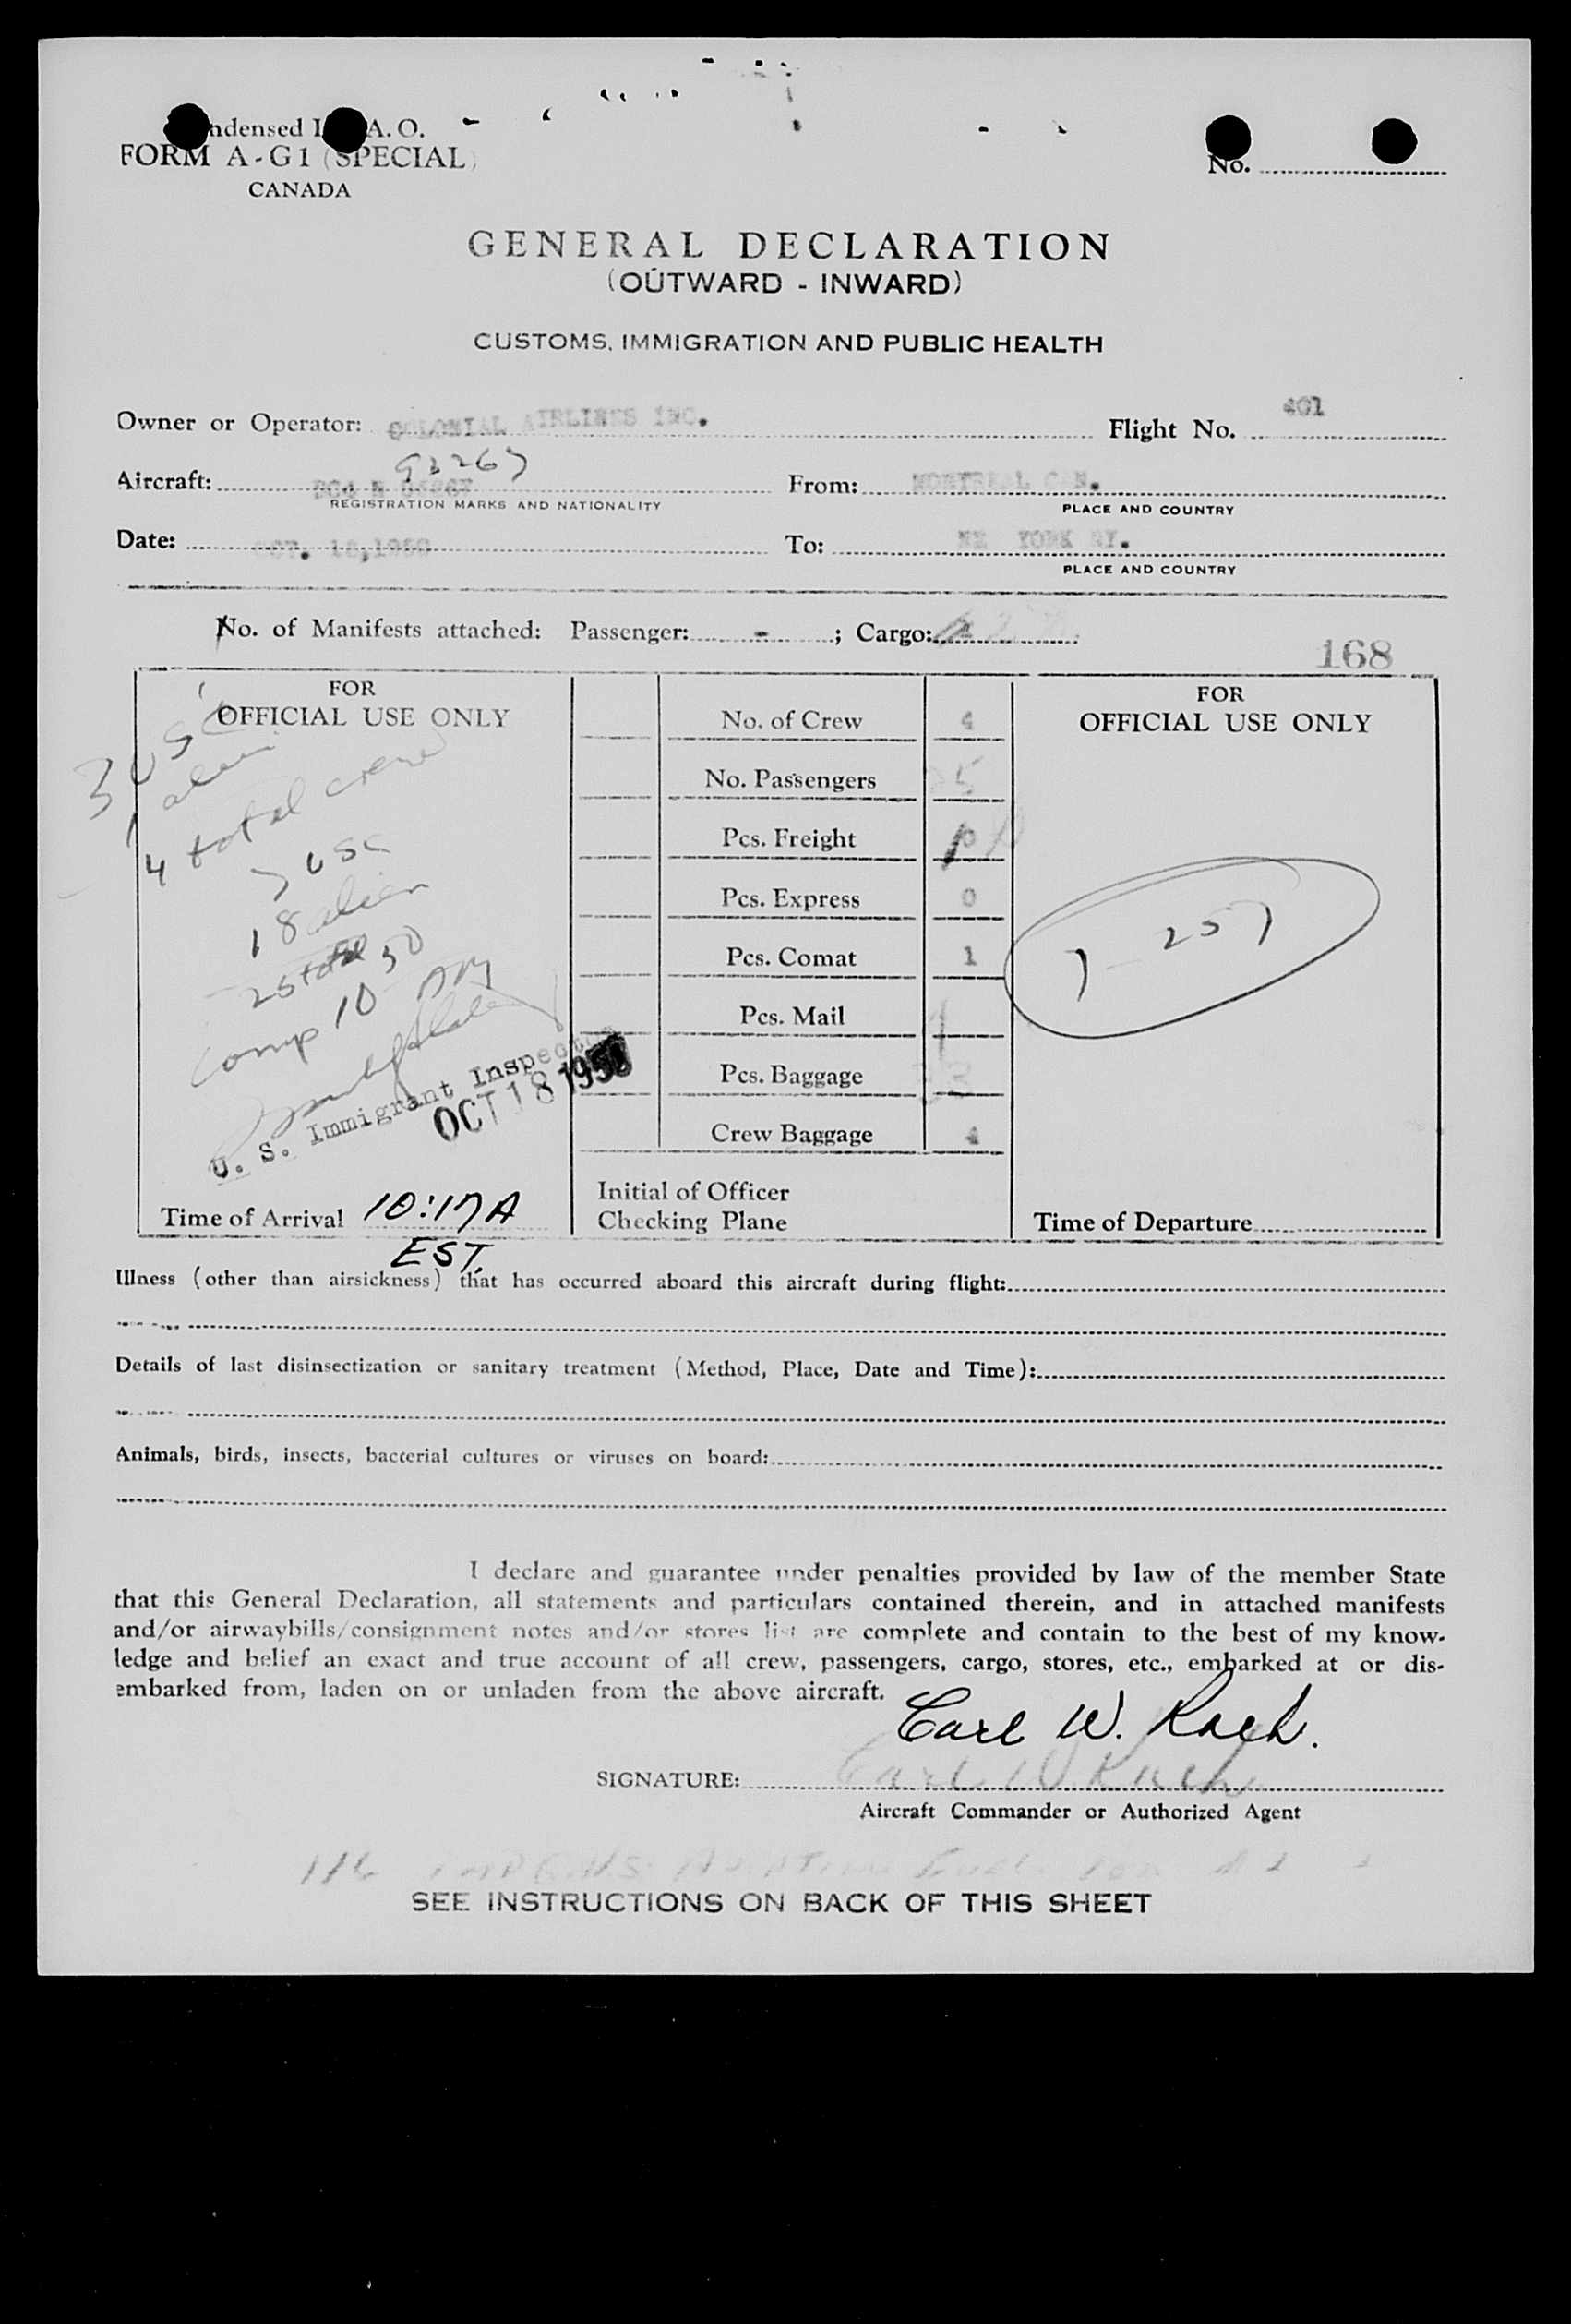 ndensed I A. O.
FORM A-G1 (SPECIAL)
CANADA
No.
GENERAL DECLARATION
(OUTWARD - INWARD)
CUSTOMS, IMMIGRATION AND PUBLIC HEALTH
Owner or Operator: COLONIAL AIRLINES INC. Flight No. 401
93267
Aircraft: DC4 N 93267 From: MONTREAL CAN.
REGISTRATION MARKS AND NATIONALITY PLACE AND COUNTRY
Date: OCT. 18,1950 To: NE YORK NY.
PLACE AND COUNTRY
No. of Manifests attached: Passenger: - ; Cargo:
168
FOR
OFFICIAL USE ONLY
3 USC
1 alien
4 total crew
7 USC
18 alien
25 total
Comp 10 30 AM
U. S. Immigrant Inspector
OCT 18 1950
Time of Arrival 10:17 A
EST.
No. of Crew 4
No. Passengers 5
Pcs. Freight
Pcs. Express 0
Pcs. Comat 1
Pcs. Mail 1
Pcs. Baggage 33
Crew Baggage 4
Initial of Officer
Checking Plane
FOR
OFFICIAL USE ONLY
7-257
Time of Departure
Illness (other than airsickness) that has occurred aboard this aircraft during flight:
Details of last disinsectization or sanitary treatment (Method, Place, Date and Time):
Animals, birds, insects, bacterial cultures or viruses on board:
I declare and guarantee under penalties provided by law of the member State
that this General Declaration, all statements and particulars contained therein, and in attached manifests
and/or airwaybills/consignment notes and/or stores list are complete and contain to the best of my know-
ledge and belief an exact and true account of all crew, passengers, cargo, stores, etc., embarked at or dis-
embarked from, laden on or unladen from the above aircraft.
Carl W. Koch.
SIGNATURE: Carl W. Koch
Aircraft Commander or Authorized Agent
SEE INSTRUCTIONS ON BACK OF THIS SHEET